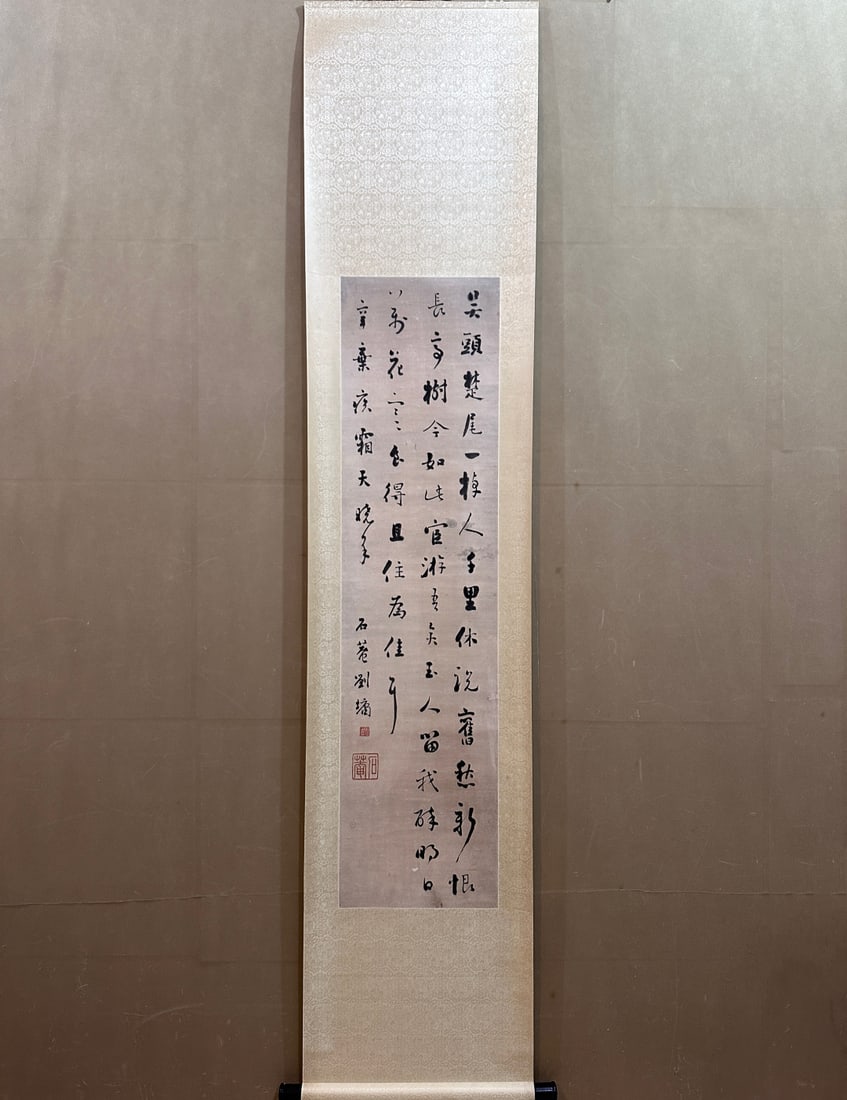 吴頭楚尾一棹人千里休説舊愁新恨
長亭樹今如此宦游吾矣玉人留我醉明日
萬花寒食得且住為佳耳
辛棄疾霜天曉角 石菴劉墉
石菴